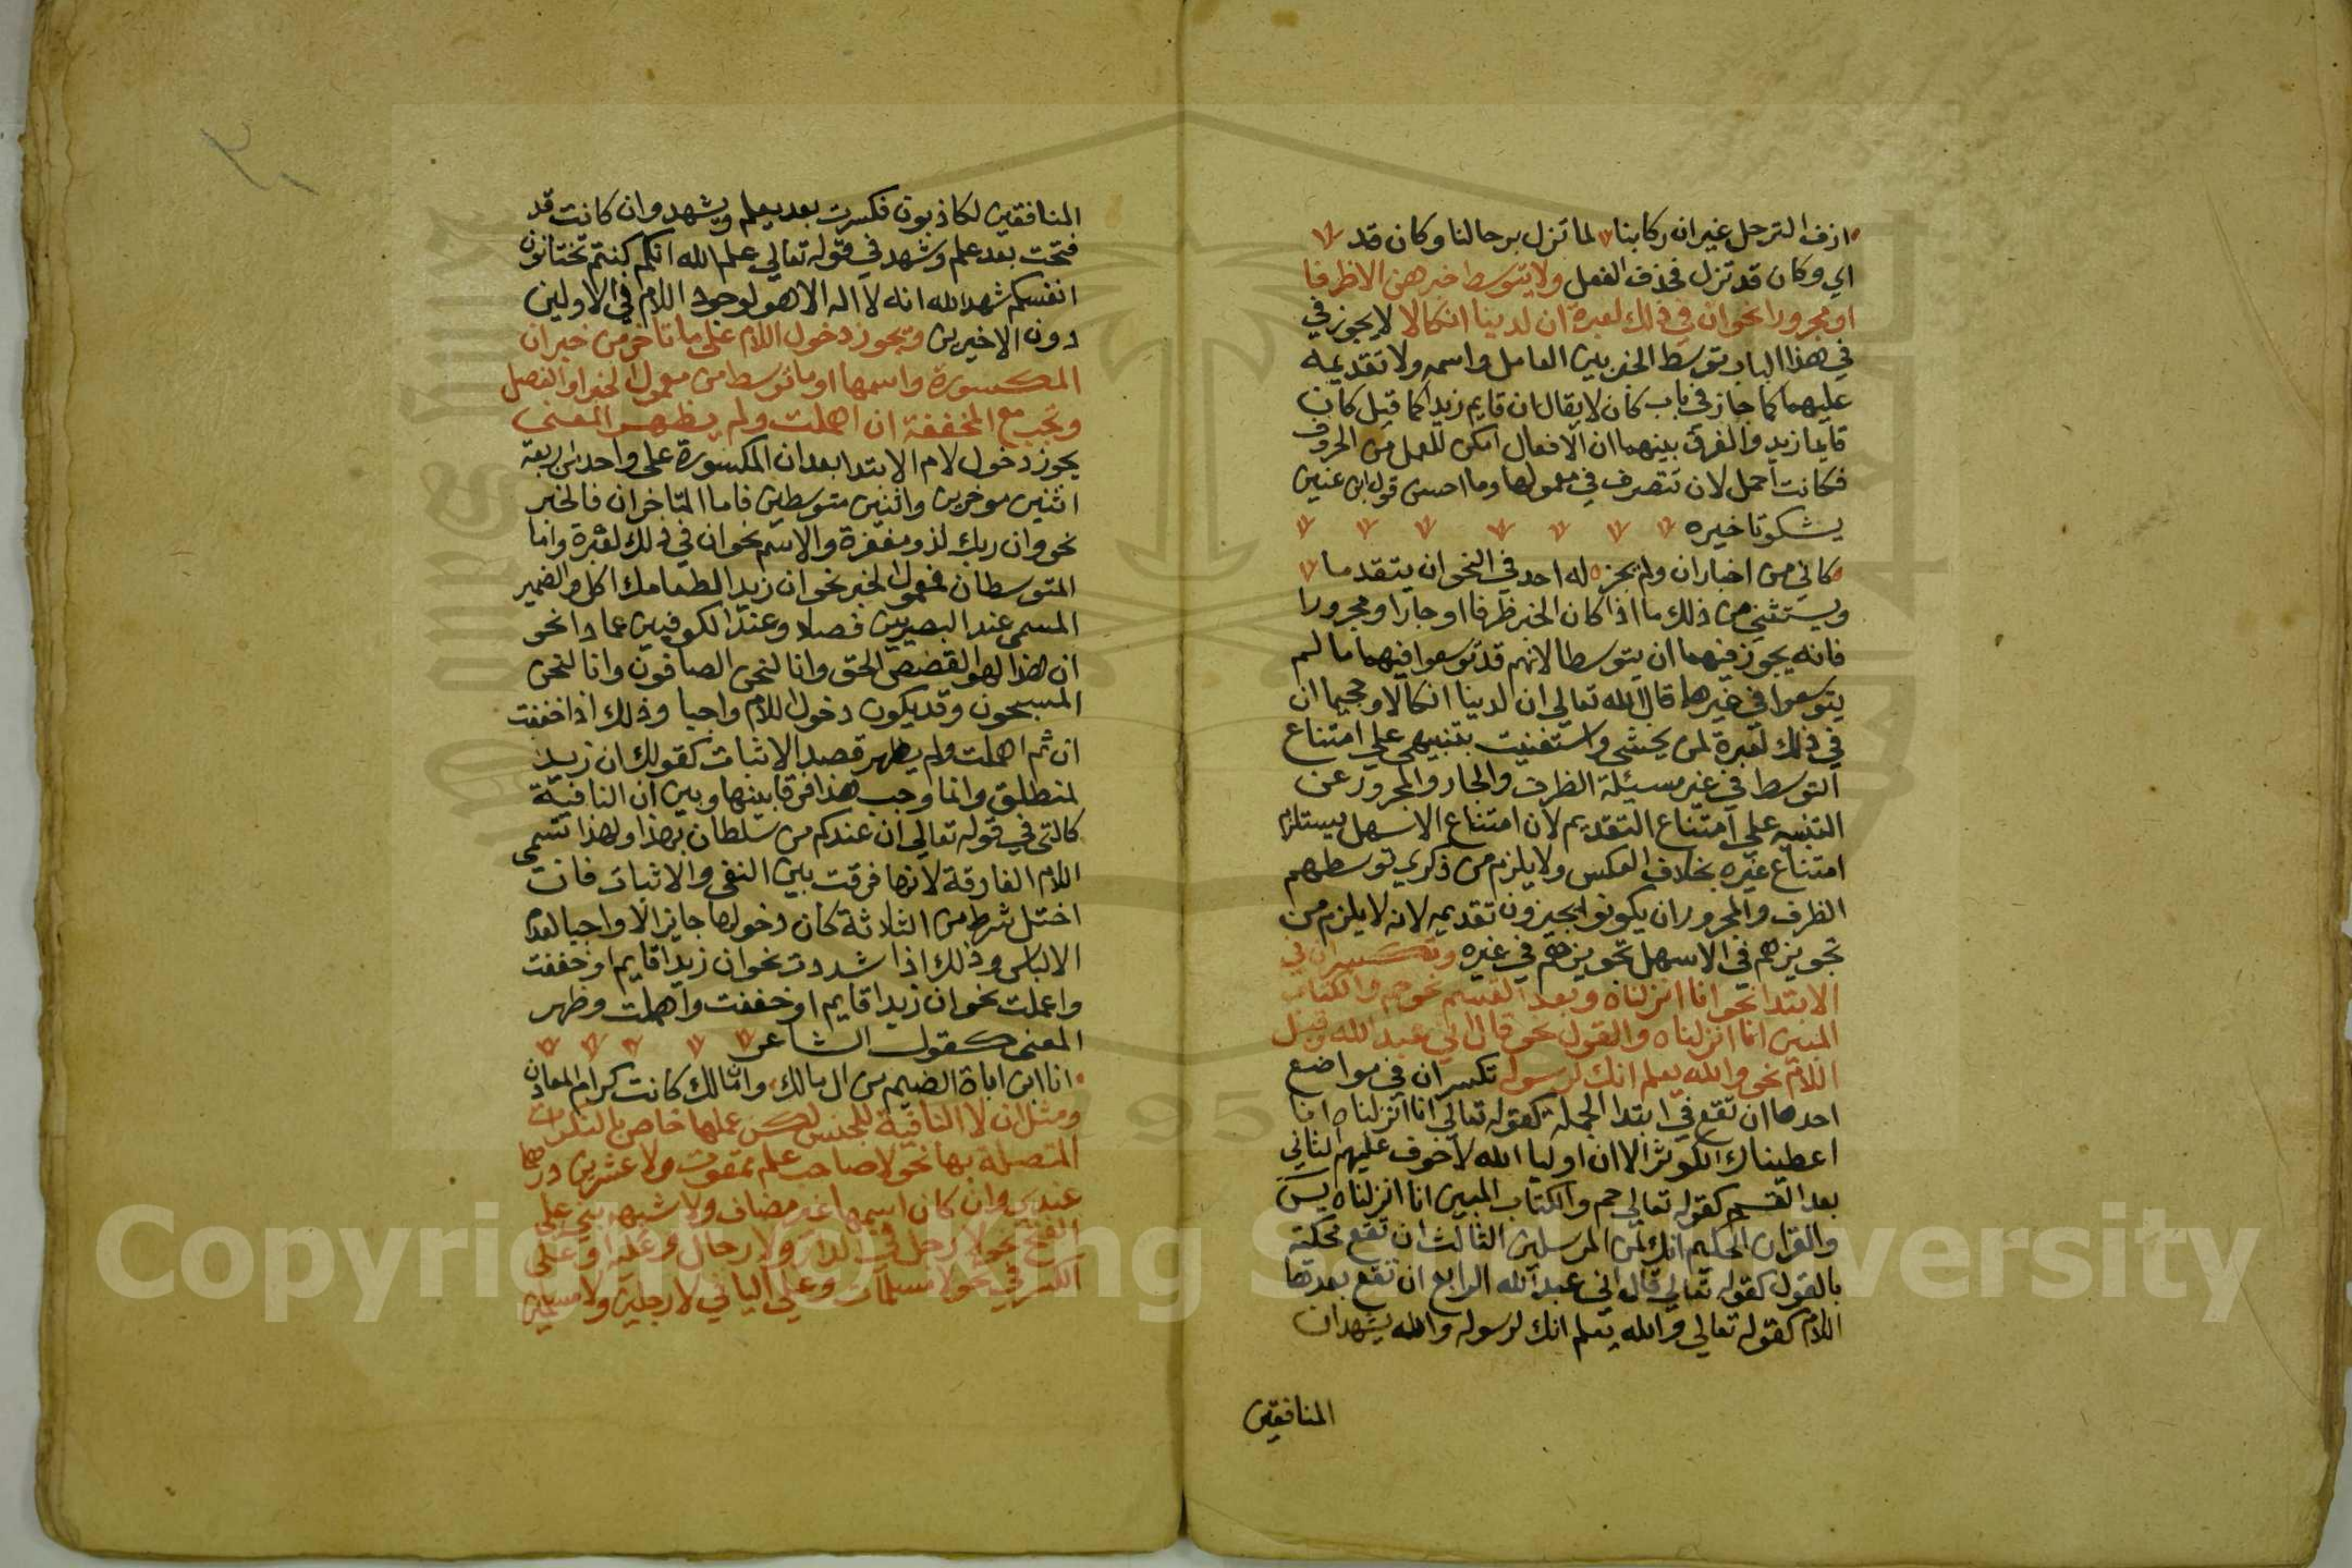 ازف الترحل غير ان ركابنا لما تزل برحالنا وكان قد
اي وكان قد تزل فحذف الفعل ولا يتوسط خبرهن الا ظرفا
او مجرورا نحو ان في ذلك لعبرة ان لدينا انكالا لا يجوز في
في هذا الباب توسط الخبر بين العامل واسمه ولا تقديمه
عليهما كما جاز في باب كان لا يقال ان قايم زيدا كما قيل كان
قايما زيد والفرق بينهما ان الافعال امكن للعمل من الحروف
فكانت احمل لان تتصرف في معمولها وما احسن قول ابن عنين
يشكو تاخيره
كاني من اخبار ان ولم يجز له احد في النحو ان يتقدما
ويستثني من ذلك ما اذا كان الخبر ظرفا او جارا ومجرورا
فانه يجوز فيهما ان يتوسطا لانهم قد توسعوا فيهما ما لم
يتوسعوا في غيرها قال الله تعالي ان لدينا انكالا وجحيما ان
في ذلك لعبرة لمن يخشي واستغنيت بتنبيهي علي امتناع
التوسط في غير مسيئلة الظرف والجار والمجرور عن
التنبيه علي امتناع التقديم لان امتناع الاسهل يستلزم
امتناع غيره بخلاف العكس ولا يلزم من ذكري توسطهم
الظرف والمجرور ان يكونوا يجيزون تقديمه لانه لا يلزم من
تجويزهم في الاسهل تجويزهم في غيره وتكسر ان في
الابتدا نحو انا انزلناه وبعد القسم نحو حم والكتاب
المبين انا انزلناه والقول نحو قال اني عبد الله وقبل
اللام نحو والله يعلم انك لرسوله تكسر ان في مواضع
احدها ان تقع في ابتدا الجملة كقوله تعالي انا انزلناه انا
اعطيناك الكوثر الا ان اوليا الله لا خوف عليهم الثاني
بعد القسم كقوله تعالي حم والكتاب المبين انا انزلناه يس
والقران الحكيم انك لمن المرسلين الثالث ان تقع محكية
بالقول كقوله تعالي قال اني عبد الله الرابع ان تقع بعدها
اللام كقوله تعالي والله يعلم انك لرسوله والله يشهد ان
المنافقين
المنافقين لكاذبون فكسرت بعد يعلم ويشهد وان كانت قد
فتحت بعد علم وشهد في قوله تعالي علم الله انكم كنتم تختانون
انفسكم شهد الله انه لا اله الا هو لوجود اللام في الاولين
دون الاخيرين ويجوز دخول اللام علي ما تاخر من خبر ان
المكسورة واسمها او ما توسط من معمول الخبر او الفصل
وتجب مع المخففة ان اهملت ولم يظهر المعني
يجوز دخول لام الابتدا بعد ان المكسورة علي واحد من اربعة
اثنين موخرين واثنين متوسطين فاما المتاخران فالخبر
نحو وان ربك لذو مغفرة والاسم نحو ان في ذلك لعبرة واما
المتوسطان فمعمول الخبر نحو ان زيدا لطعامك اكل والضمير
المسمي عند البصريين فصلا وعند الكوفيين عمادا نحو
ان هذا لهو القصص الحق وانا لنحن الصافون وانا لنحن
المسبحون وقد يكون دخول اللام واجبا وذلك اذا خففت
ان ثم اهملت ولم يظهر قصد الاثبات كقولك ان زيد
لمنطلق وانما وجب هذا فرقا بينها وبين ان النافية
كالتي في قوله تعالي ان عندكم من سلطان بهذا ولهذا تسمي
اللام الفارقة لانها فرقت بين النفي والاثبات فان
اختل شرط من الثلاثة كان دخولها جايزا لا واجبا لعدم
الالباس وذلك اذا شددت نحو ان زيدا قايم او خففت
واعملت نحو ان زيدا قايم او خففت واهملت وظهر
المعني كقول الشاعر
انا ابن اباة الضيم من ال مالك وان مالك كانت كرام المعادن
ومثل ان لا النافية للجنس لكن عملها خاص بالنكرات
المتصلة بها نحو لا صاحب علم ممقوت ولا عشرين درهما
عندي وان كان اسمها غير مضاف ولا شبهه بني علي
الفتح نحو لا رجل في الدار ولا رجال وعليه او علي
الكسر في نحو لا مسلمات وعلي اليا في لا رجلين ولا مسلمين
Copyright © King Saud University